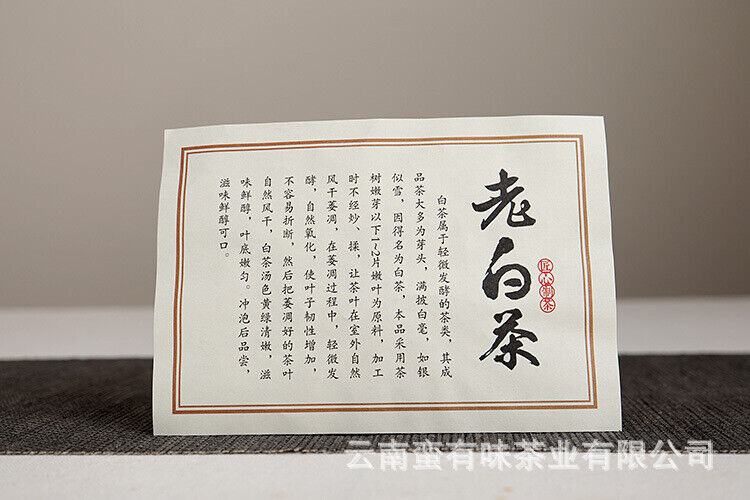 老白茶
匠心制茶
白茶属于轻微发酵的茶类，其成
品茶大多为芽头，满披白毫，如银
似雪，因得名为白茶，本品采用茶
树嫩芽以下1~2片嫩叶为原料，加工
时不经炒、揉，让茶叶在室外自然
风干萎凋，在萎凋过程中，轻微发
酵，自然氧化，使叶子韧性增加，
不容易折断，然后把萎凋好的茶叶
自然风干，白茶汤色黄绿清嫩，滋
味鲜醇，叶底嫩匀。冲泡后品尝，
滋味鲜醇可口。
云南蛮有味茶业有限公司